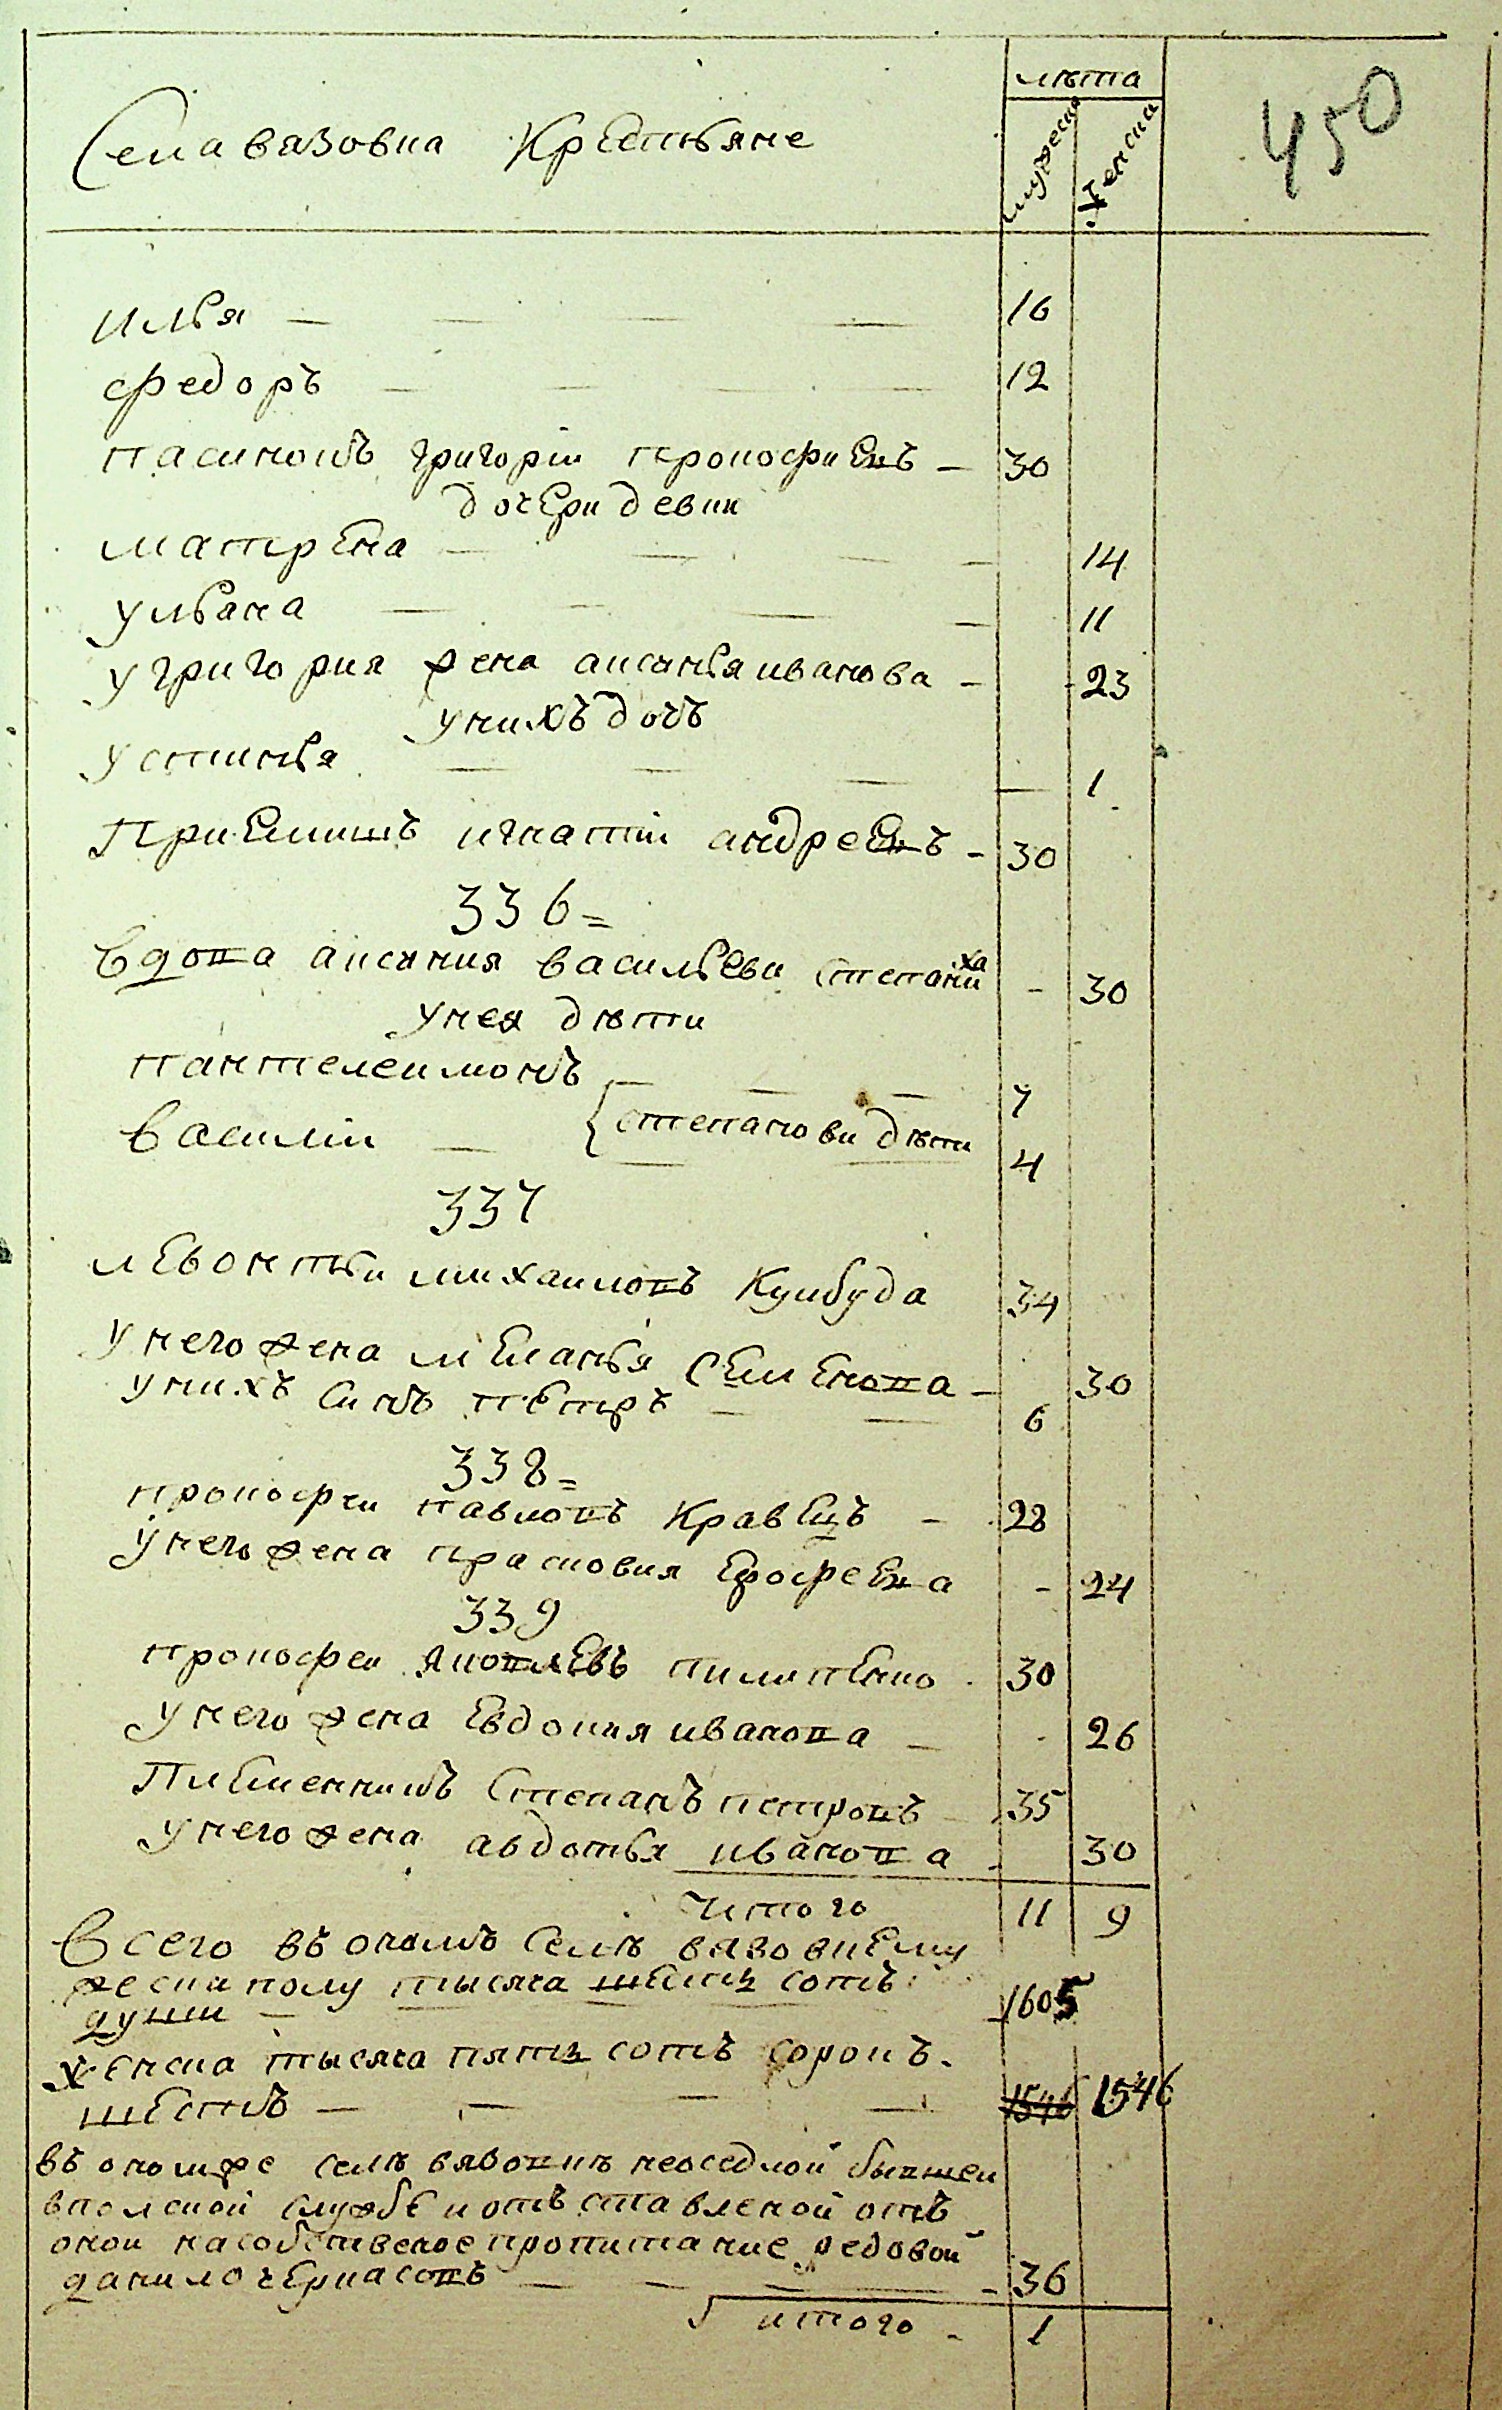 лѣта
450
Села вязовка Крестьяне
мужеска
Женска
илья — — — — 16
федоръ — — — 12
пасинокъ григорій прокофиевъ — 30
дочери девки
матрена — — — — 14
ульяна — — — — 11
у григория жена аксинья иванова — 23
у нихъ дочь
устинья — — — — 1
Приемишъ игнатіи андреевъ — 30
336
вдова аксиния васильева степаниха — 30
у нея дѣти
пантелеимонъ — — — 7
василіи — { степанови дѣти 4
337
левонтьи михаиловъ Кулбуда 34
у него жена меланья семенова — 30
у нихъ синъ петръ — — 6
338
прокофеи павловъ Кравецъ — 28
у него жена прасковия Ерофеева — 24
339
прокофеи яковлевъ пилипенко 30
у него жена Евдокия иванова — 26
Племенникъ Степанъ петровъ — 35
у него жена авдотья иванова — 30
итого 11 9
Всего въ ономъ селѣ вязовки му
жеска полу тысяча шестъ сотъ
души — — — — 1605
женска тысяча пять сотъ сорокъ
шесть — — — — 1546 1546
въ ономже селѣ вязовкѣ неоседлой бывшеи
в полской службе и отъставленой отъ
оной на собственое пропитание редовой
данило черкасовъ — — — 36
итого — 1